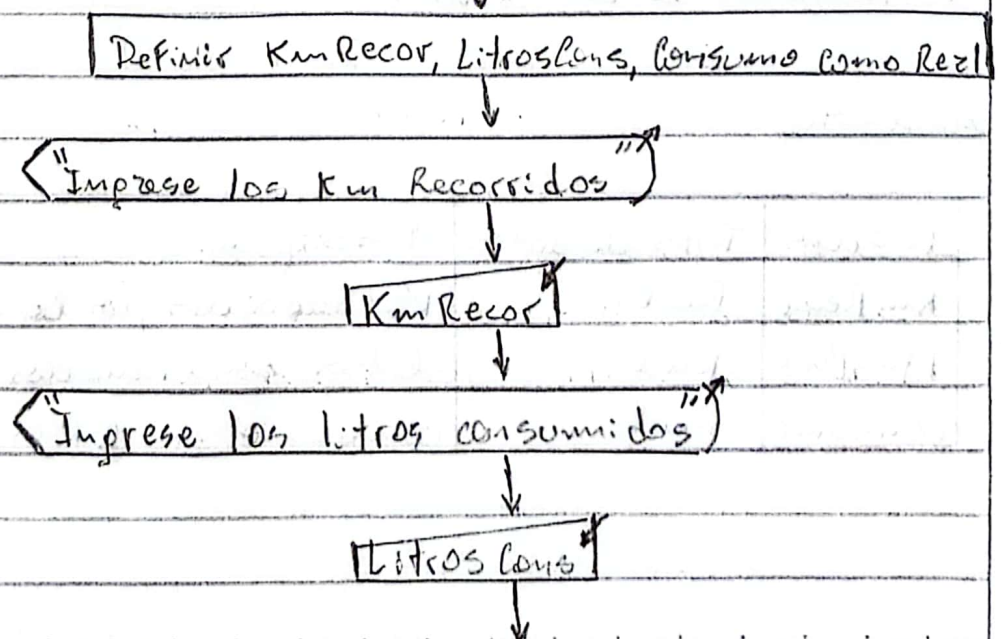 Definir KmRecor, LitrosCons, Consumo como Real
"Ingrese los Km Recorridos"
KmRecor
"Ingrese los litros consumidos"
LitrosCons